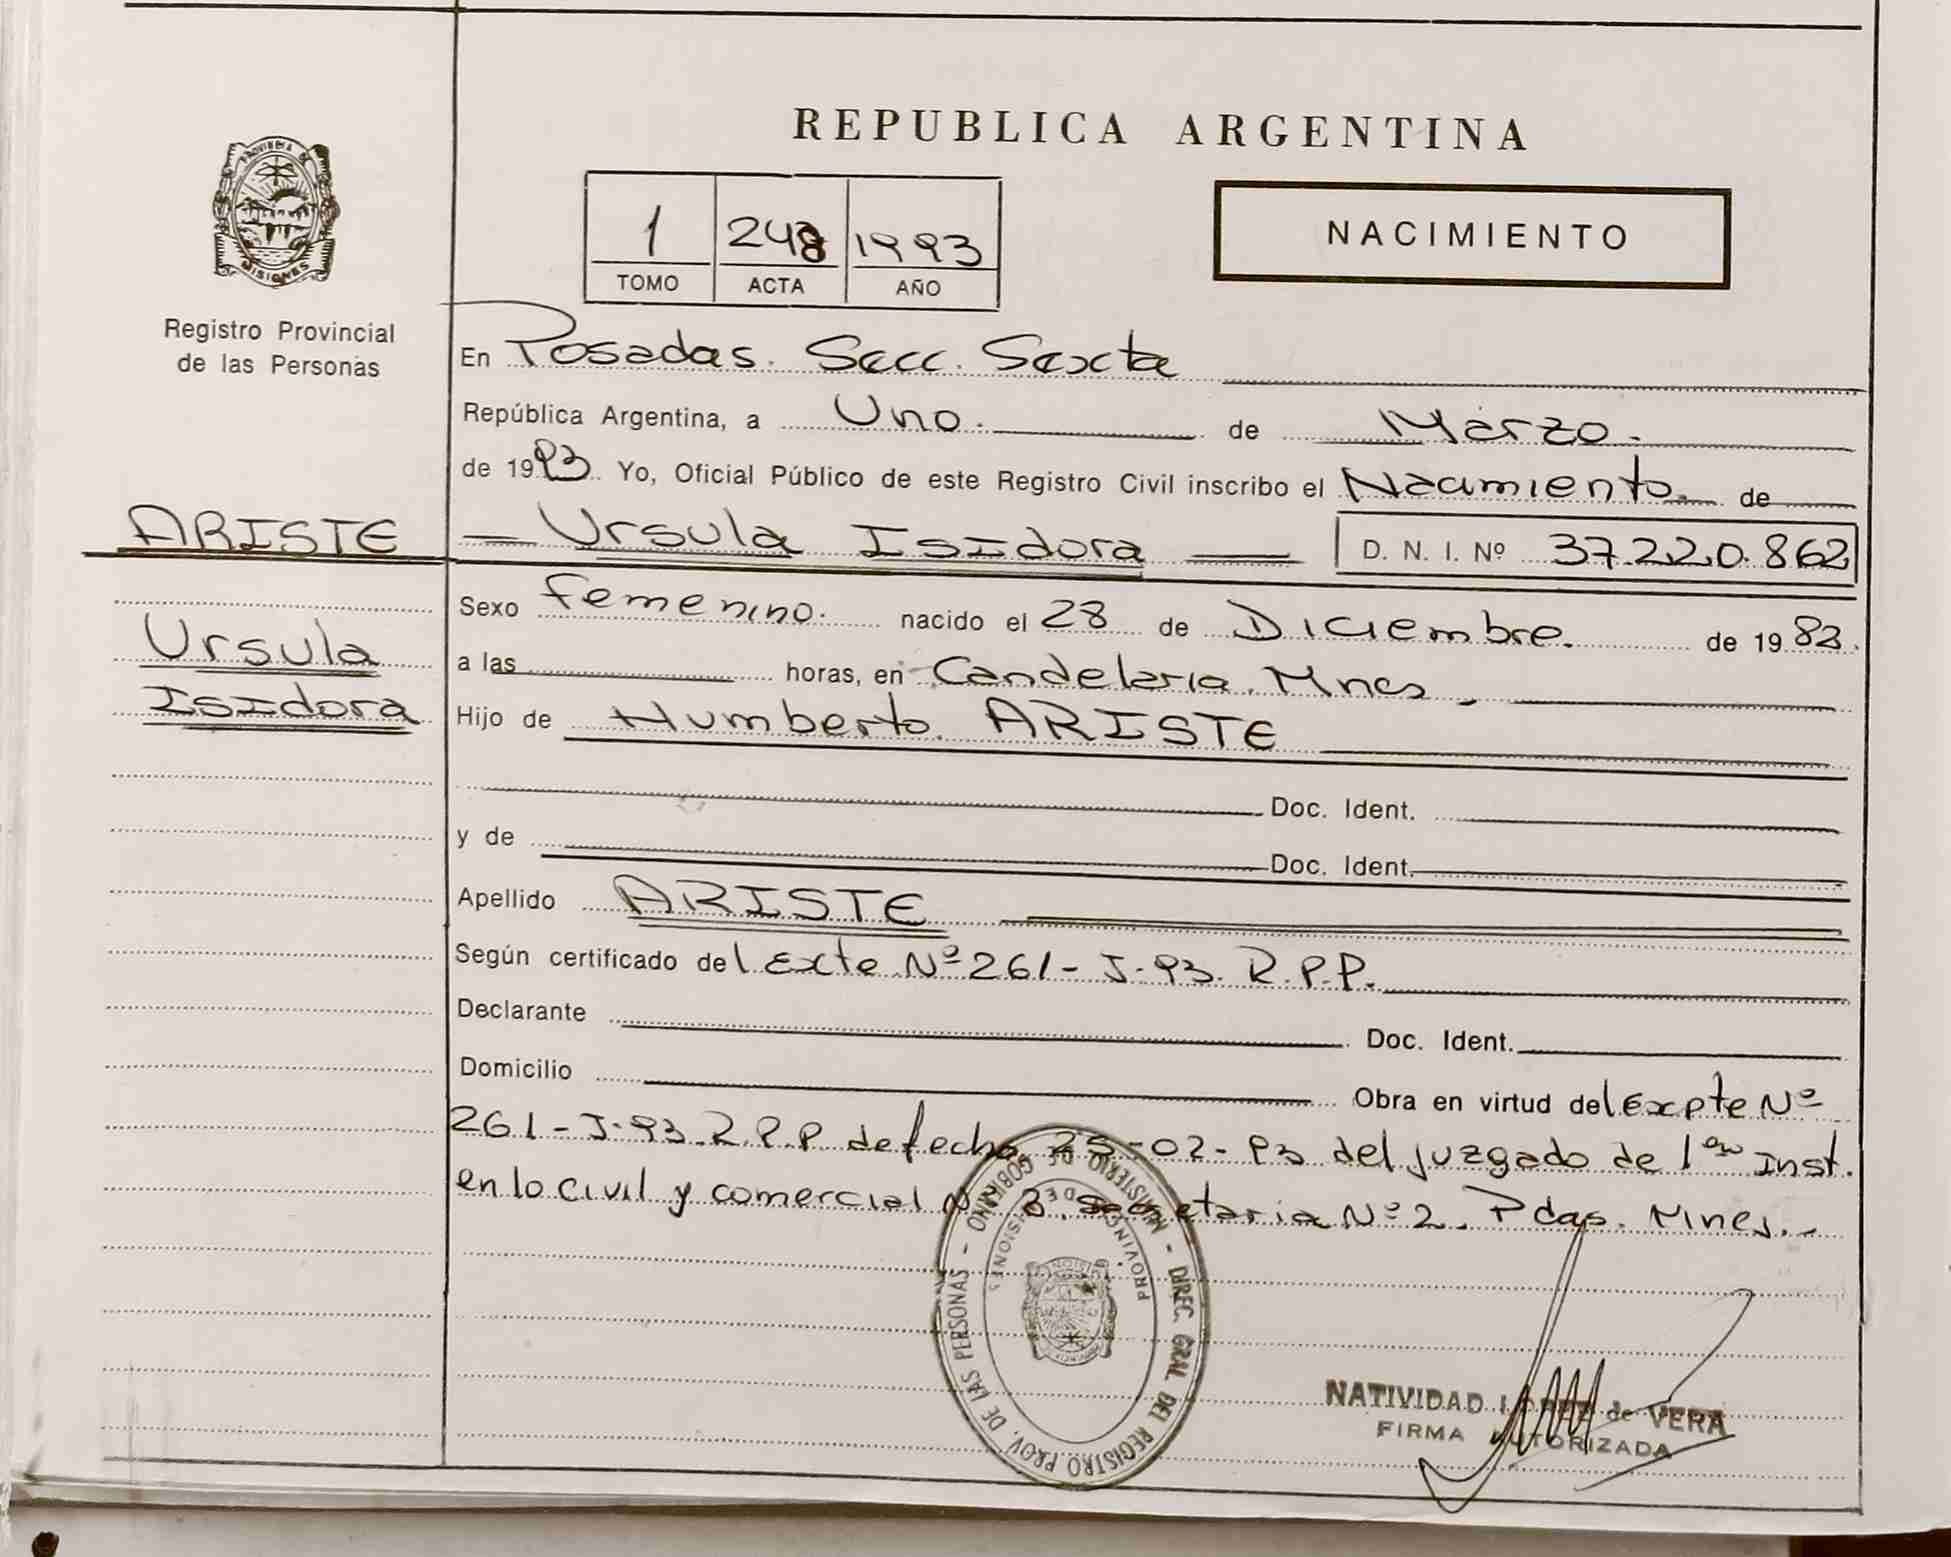 REPUBLICA ARGENTINA
PROVINCIA DE
MISIONES
Registro Provincial
de las Personas
1 248 1993
TOMO ACTA AÑO
NACIMIENTO
En Posadas. Secc. Sexta
República Argentina, a Uno. de Marzo.
de 1993. Yo, Oficial Público de este Registro Civil inscribo el Nacimiento. de
ARISTE
Ursula Isidora D. N. I. Nº 37.220.862
Sexo femenino. nacido el 28 de Diciembre. de 1982.
Ursula
Isidora
a las horas, en Candelaria. Mnes.
Hijo de Humberto. ARISTE
Doc. Ident.
y de Doc. Ident.
Apellido ARISTE
Según certificado del Exte Nº 261-J-93. R.P.P.
Declarante Doc. Ident.
Domicilio Obra en virtud del Expte Nº
261-J-93. R.P.P de fecha 25-02-93 del juzgado de 1era Inst.
en lo Civil y comercial Nº Secretaria Nº 2. Pdas. Mnes.
MINISTERIO DE GOBIERNO - DIREC. GRAL DEL REGISTRO PROV. DE LAS PERSONAS -
PROVINCIA DE MISIONES
NATIVIDAD LOPEZ de VERA
FIRMA AUTORIZADA